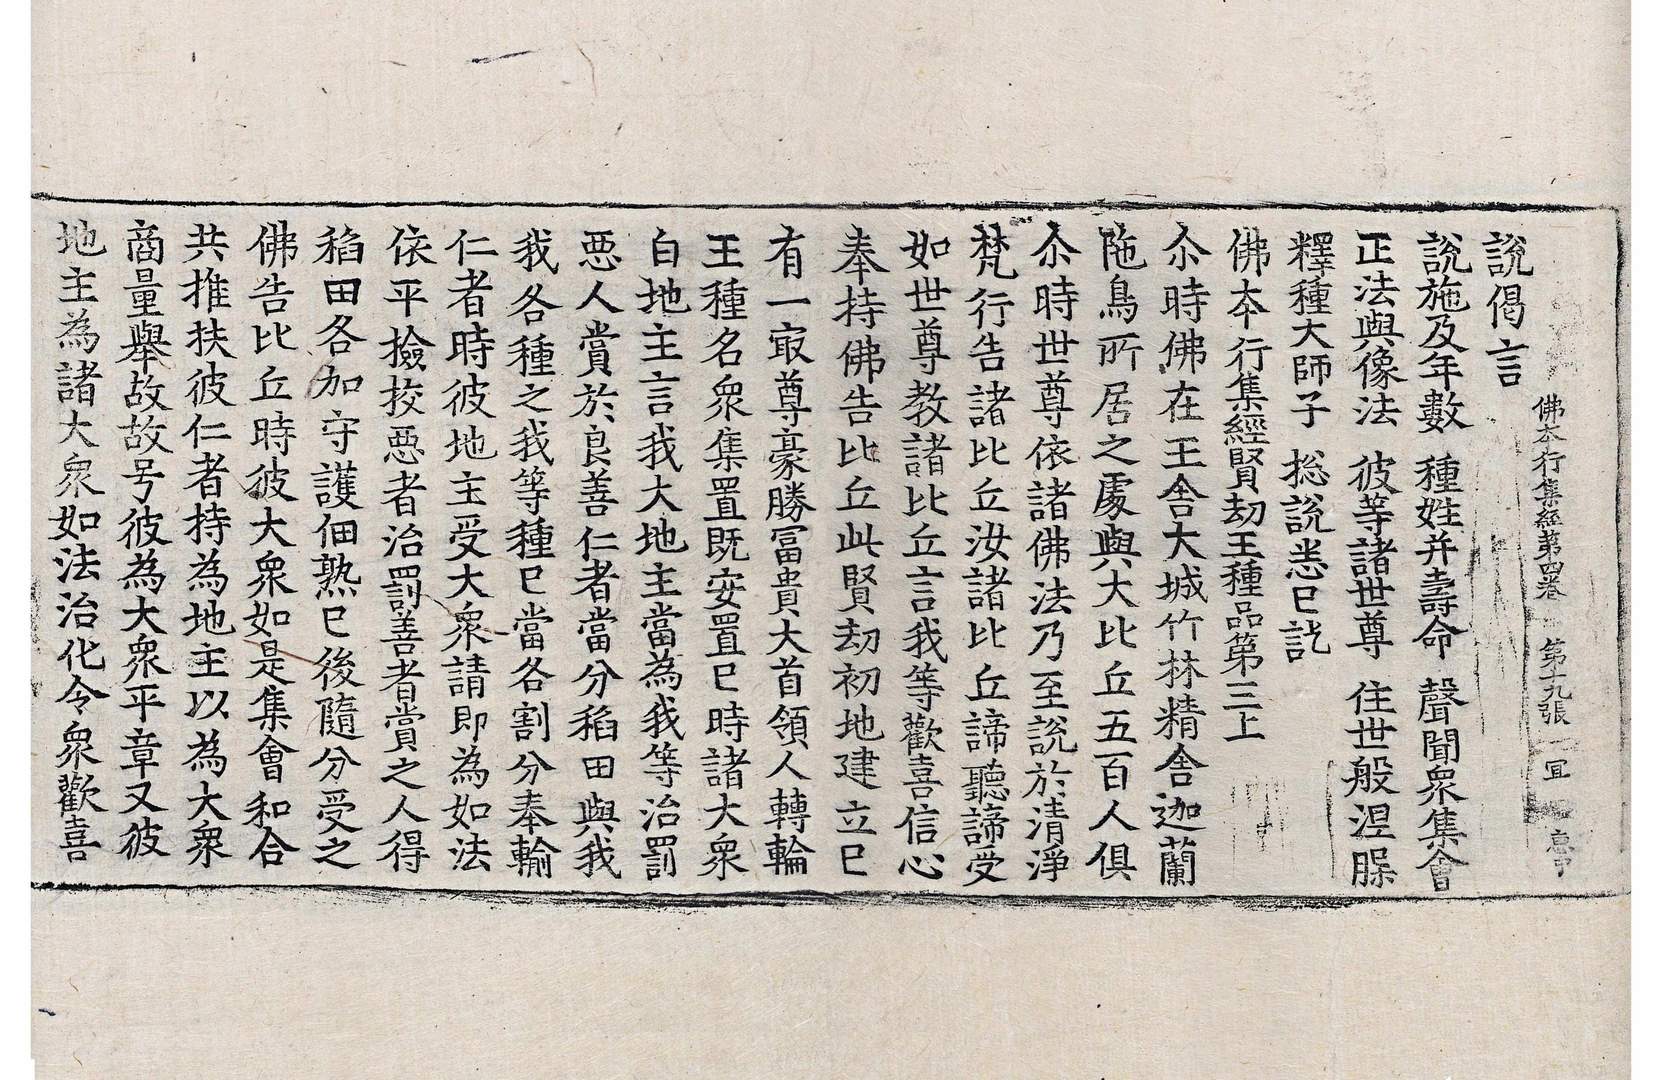 佛本行集經第四卷 第十九張 宜
說偈言
說施及年數 種姓并壽命 聲聞衆集會
正法與像法 彼等諸世尊 住世般涅腺
釋種大師子 揔說悉已訖
佛本行集經賢劫王種品第三上
尒時佛在王舍大城竹林精舍迦蘭
陁鳥所居之處與大比丘五百人俱
尒時世尊依諸佛法乃至說於清淨
梵行告諸比丘汝諸比丘諦聽諦受
如世尊教諸比丘言我等歡喜信心
奉持佛告比丘此賢劫初地建立已
有一㝡尊豪勝冨貴大首領人轉輪
王種名衆集置既安置已時諸大衆
白地主言我大地主當為我等治罰
惡人賞於良善仁者當分稻田與我
我各種之我等種已當各割分奉輸
仁者時彼地主受大衆請即為如法
依平撿挍惡者治罰善者賞之人得
稻田各加守護佃熟已後隨分受之
佛告比丘時彼大衆如是集會和合
共推扶彼仁者持為地主以為大衆
商量舉故故号彼為大衆平章又彼
地主為諸大衆如法治化令衆歡喜